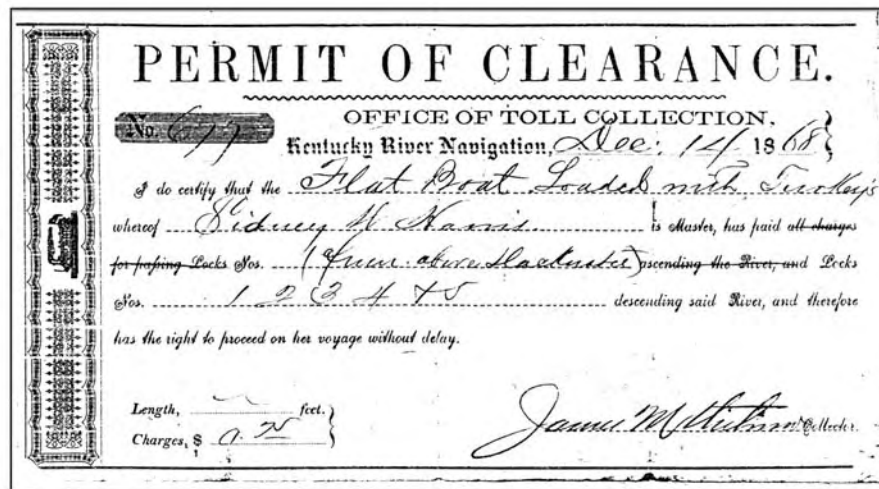 PERMIT OF CLEARANCE.
No. 677 OFFICE OF TOLL COLLECTION,
Kentucky River Navigation, Dec. 14 1868
I do certify that the Flat Boat Loaded with Turkeys
whereof Sidney W Harris is Master, has paid all charges
for passing Locks Nos. (from above ascending the River, and Locks
Nos. 1 2 3 4 & 5 descending said River, and therefore
has the right to proceed on her voyage without delay.
Length, feet.
Charges, $
James Collector.